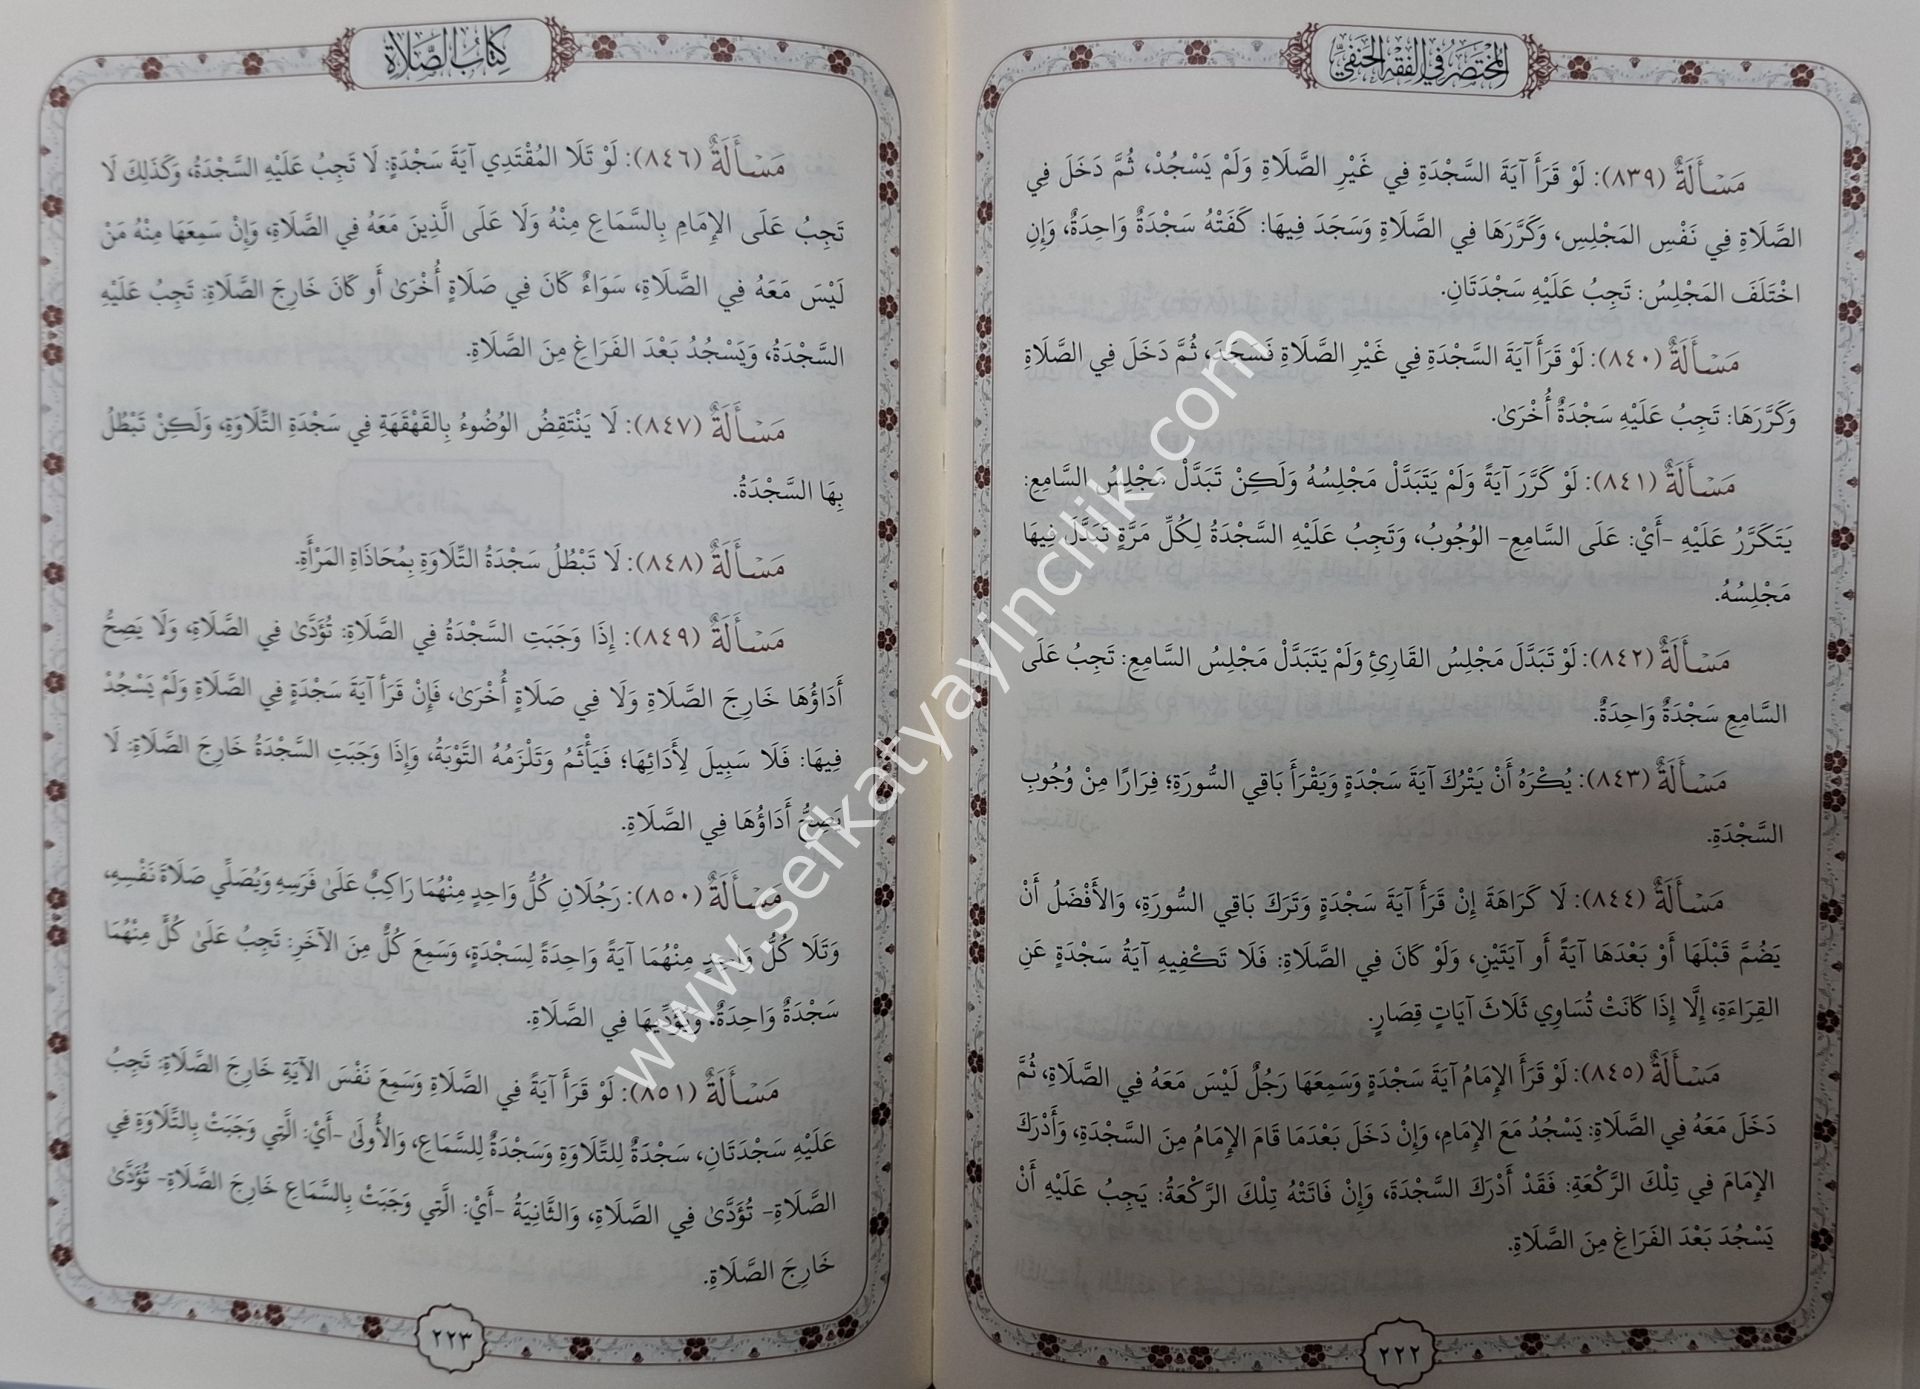 المُخْتَصَرُ فِي الفِقْهِ الحَنَفِيِّ
مَسْأَلَةٌ (٨٣٩): لَوْ قَرَأَ آيَةَ السَّجْدَةِ فِي غَيْرِ الصَّلَاةِ وَلَمْ يَسْجُدْ، ثُمَّ دَخَلَ فِي
الصَّلَاةِ فِي نَفْسِ المَجْلِسِ، وَكَرَّرَهَا فِي الصَّلَاةِ وَسَجَدَ فِيهَا: كَفَتْهُ سَجْدَةٌ وَاحِدَةٌ، وَإِنِ
اخْتَلَفَ المَجْلِسُ: تَجِبُ عَلَيْهِ سَجْدَتَانِ.
مَسْأَلَةٌ (٨٤٠): لَوْ قَرَأَ آيَةَ السَّجْدَةِ فِي غَيْرِ الصَّلَاةِ فَسَجَدَ، ثُمَّ دَخَلَ فِي الصَّلَاةِ
وَكَرَّرَهَا: تَجِبُ عَلَيْهِ سَجْدَةٌ أُخْرَىٰ.
مَسْأَلَةٌ (٨٤١): لَوْ كَرَّرَ آيَةً وَلَمْ يَتَبَدَّلْ مَجْلِسُهُ وَلَكِنْ تَبَدَّلْ مَجْلِسُ السَّامِعِ:
يَتَكَرَّرُ عَلَيْهِ -أَيْ: عَلَى السَّامِعِ- الوُجُوبُ، وَتَجِبُ عَلَيْهِ السَّجْدَةُ لِكُلِّ مَرَّةٍ تَبَدَّلَ فِيهَا
مَجْلِسُهُ.
مَسْأَلَةٌ (٨٤٢): لَوْ تَبَدَّلَ مَجْلِسُ القَارِئِ وَلَمْ يَتَبَدَّلْ مَجْلِسُ السَّامِعِ: تَجِبُ عَلَى
السَّامِعِ سَجْدَةٌ وَاحِدَةٌ.
مَسْأَلَةٌ (٨٤٣): يُكْرَهُ أَنْ يَتْرُكَ آيَةَ سَجْدَةٍ وَيَقْرَأَ بَاقِي السُّورَةِ؛ فِرَارًا مِنْ وُجُوبِ
السَّجْدَةِ.
مَسْأَلَةٌ (٨٤٤): لَا كَرَاهَةَ إِنْ قَرَأَ آيَةَ سَجْدَةٍ وَتَرَكَ بَاقِي السُّورَةِ، وَالأَفْضَلُ أَنْ
يَضُمَّ قَبْلَهَا أَوْ بَعْدَهَا آيَةً أَو آيَتَيْنِ، وَلَوْ كَانَ فِي الصَّلَاةِ: فَلَا تَكْفِيهِ آيَةُ سَجْدَةٍ عَنِ
القِرَاءَةِ، إِلَّا إِذَا كَانَتْ تُسَاوِي ثَلَاثَ آيَاتٍ قِصَارٍ.
مَسْأَلَةٌ (٨٤٥): لَوْ قَرَأَ الإِمَامُ آيَةَ سَجْدَةٍ وَسَمِعَهَا رَجُلٌ لَيْسَ مَعَهُ فِي الصَّلَاةِ، ثُمَّ
دَخَلَ مَعَهُ فِي الصَّلَاةِ: يَسْجُدُ مَعَ الإِمَامِ، وَإِنْ دَخَلَ بَعْدَمَا قَامَ الإِمَامُ مِنَ السَّجْدَةِ، وَأَدْرَكَ
الإِمَامَ فِي تِلْكَ الرَّكْعَةِ: فَقَدْ أَدْرَكَ السَّجْدَةَ، وَإِنْ فَاتَتْهُ تِلْكَ الرَّكْعَةُ: يَجِبُ عَلَيْهِ أَنْ
يَسْجُدَ بَعْدَ الفَرَاغِ مِنَ الصَّلَاةِ.
٢٢٢
كِتَابُ الصَّلَاةِ
مَسْأَلَةٌ (٨٤٦): لَوْ تَلَا المُقْتَدِي آيَةَ سَجْدَةٍ: لَا تَجِبُ عَلَيْهِ السَّجْدَةُ، وَكَذَلِكَ لَا
تَجِبُ عَلَى الإِمَامِ بِالسَّمَاعِ مِنْهُ وَلَا عَلَى الَّذِينَ مَعَهُ فِي الصَّلَاةِ، وَإِنْ سَمِعَهَا مِنْهُ مَنْ
لَيْسَ مَعَهُ فِي الصَّلَاةِ، سَوَاءٌ كَانَ فِي صَلَاةٍ أُخْرَىٰ أَو كَانَ خَارِجَ الصَّلَاةِ: تَجِبُ عَلَيْهِ
السَّجْدَةُ، وَيَسْجُدُ بَعْدَ الفَرَاغِ مِنَ الصَّلَاةِ.
مَسْأَلَةٌ (٨٤٧): لَا يَنْتَقِضُ الوُضُوءُ بِالقَهْقَهَةِ فِي سَجْدَةِ التِّلَاوَةِ، وَلَكِنْ تَبْطُلُ
بِهَا السَّجْدَةُ.
مَسْأَلَةٌ (٨٤٨): لَا تَبْطُلُ سَجْدَةُ التِّلَاوَةِ بِمُحَاذَاةِ المَرْأَةِ.
مَسْأَلَةٌ (٨٤٩): إِذَا وَجَبَتِ السَّجْدَةُ فِي الصَّلَاةِ: تُؤَدَّىٰ فِي الصَّلَاةِ، وَلَا يَصِحُّ
أَدَاؤُهَا خَارِجَ الصَّلَاةِ وَلَا فِي صَلَاةٍ أُخْرَىٰ، فَإِنْ قَرَأَ آيَةَ سَجْدَةٍ فِي الصَّلَاةِ وَلَمْ يَسْجُدْ
فِيهَا: فَلَا سَبِيلَ لِأَدَائِهَا؛ فَيَأْثَمُ وَتَلْزَمُهُ التَّوْبَةُ، وَإِذَا وَجَبَتِ السَّجْدَةُ خَارِجَ الصَّلَاةِ: لَا
يَصِحُّ أَدَاؤُهَا فِي الصَّلَاةِ.
مَسْأَلَةٌ (٨٥٠): رَجُلَانِ كُلُّ وَاحِدٍ مِنْهُمَا رَاكِبٌ عَلَىٰ فَرَسِهِ وَيُصَلِّي صَلَاةَ نَفْسِهِ،
وَتَلَا كُلُّ وَاحِدٍ مِنْهُمَا آيَةً وَاحِدَةً لِسَجْدَةٍ، وَسَمِعَ كُلٌّ مِنَ الآخَرِ: تَجِبُ عَلَىٰ كُلٍّ مِنْهُمَا
سَجْدَةٌ وَاحِدَةٌ، وَيُؤَدِّيهَا فِي الصَّلَاةِ.
مَسْأَلَةٌ (٨٥١): لَوْ قَرَأَ آيَةً فِي الصَّلَاةِ وَسَمِعَ نَفْسَ الآيَةِ خَارِجَ الصَّلَاةِ: تَجِبُ
عَلَيْهِ سَجْدَتَانِ، سَجْدَةٌ لِلتِّلَاوَةِ وَسَجْدَةٌ لِلسَّمَاعِ، وَالأُولَىٰ -أَيْ: الَّتِي وَجَبَتْ بِالتِّلَاوَةِ فِي
الصَّلَاةِ- تُؤَدَّىٰ فِي الصَّلَاةِ، وَالثَّانِيَةُ -أَيْ: الَّتِي وَجَبَتْ بِالسَّمَاعِ خَارِجَ الصَّلَاةِ- تُؤَدَّىٰ
خَارِجَ الصَّلَاةِ.
٢٢٣
www.sefkatyayincilik.com